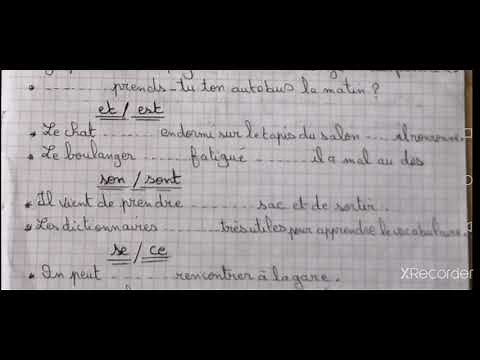 • ......... prends-tu ton autobus la matin ?
et / est
• Le chat ........ endormi sur le tapis du salon .... il ronronne.
• Le boulanger ......... fatigué ......... il a mal au dos
son / sont
• Il vient de prendre ......... sac et de sortir.
• Les dictionnaires ......... très utiles pour apprendre le vocabulaire.
se / ce
• On peut ......... rencontrer à la gare.
XRecorder